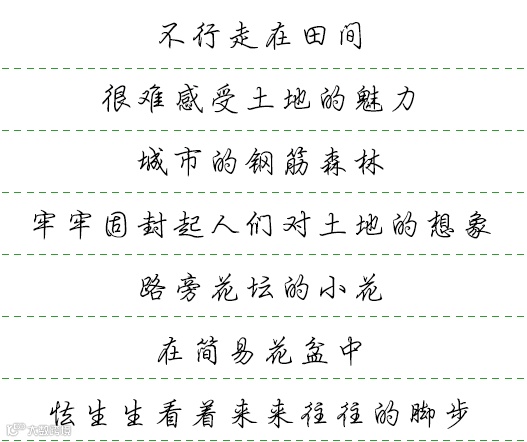 不行走在田间
很难感受土地的魅力
城市的钢筋森林
牢牢固封起人们对土地的想象
路旁花坛的小花
在简易花盆中
怯生生看着来来往往的脚步